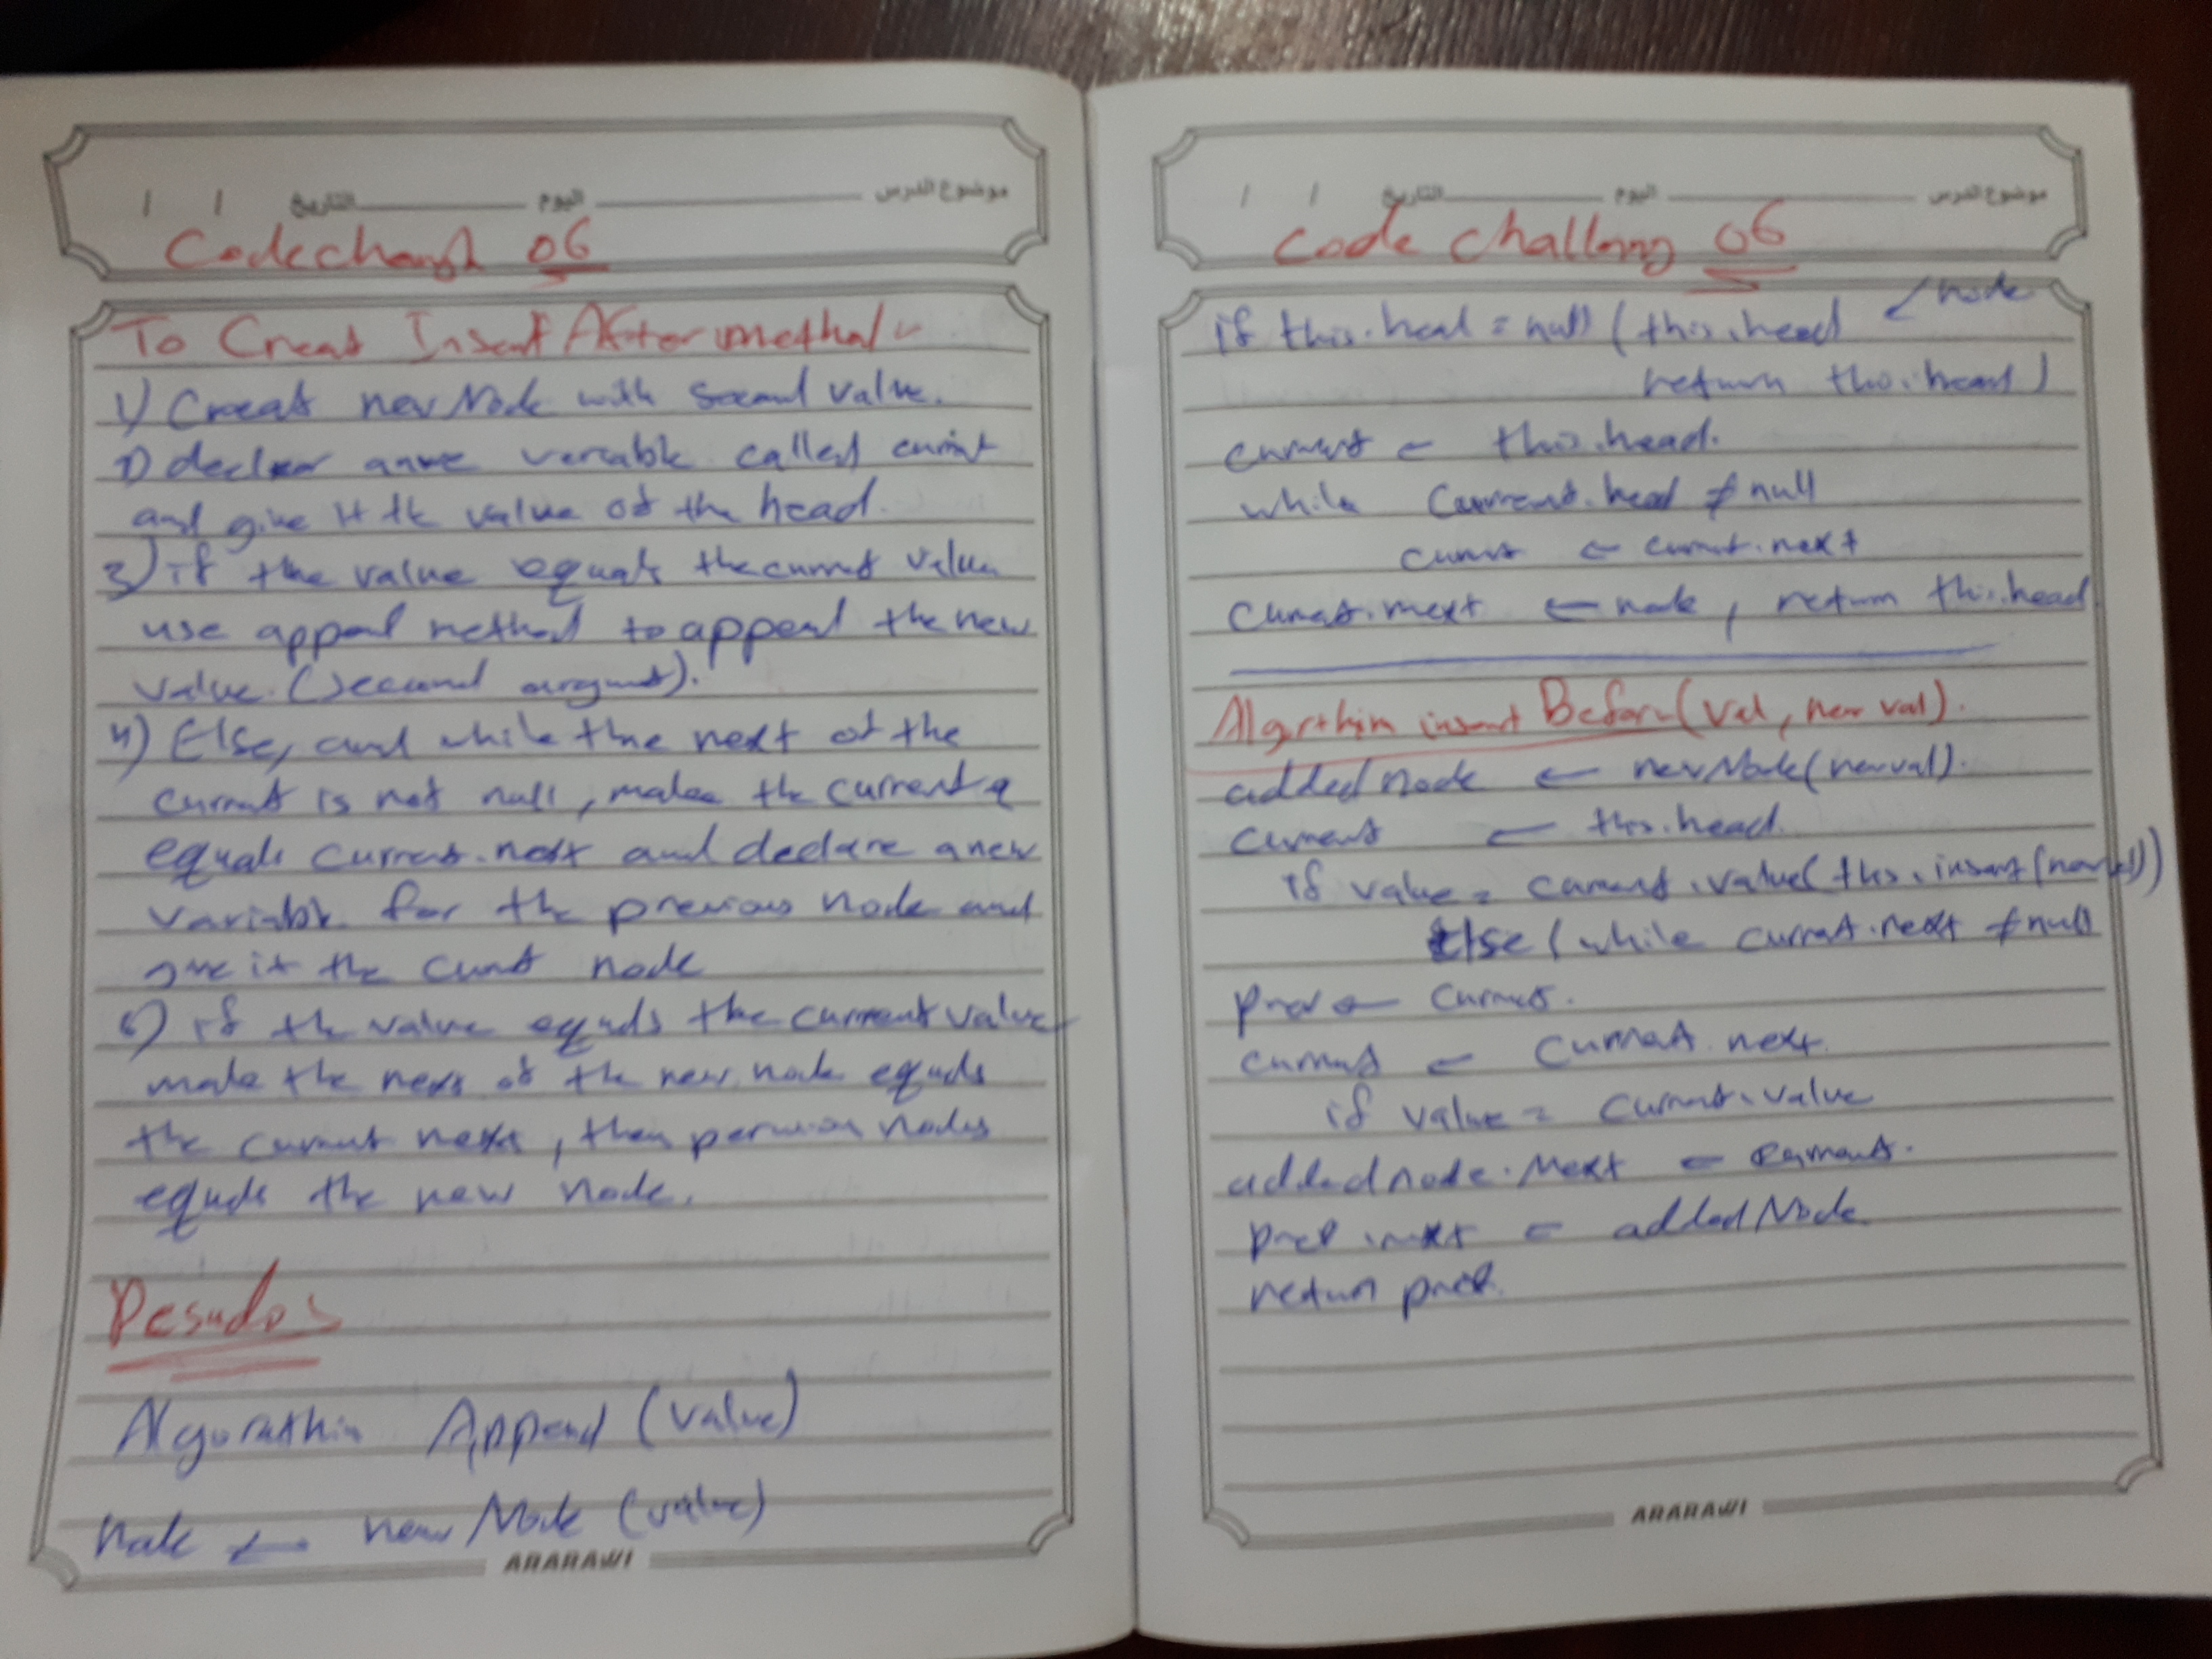 موضوع الدرس اليوم التاريخ / /
Code 06
To Creat Insert After methal
1) Creeat new Node with second value.
2) declear a varable called currint
and give it the value of the head.
3) if the value equals the current value
use appenl methed to appenl the new
value. (second argumt).
4) Else, and while the next of the
current is not null, make the current
equals current.next and declare a new
variable for the previous node and
give it the current node
5) if the value equals the current value
make the next of the new node equals
the current next, then nodes
equals the new node.
Pesudo
Algorathim Append (value)
node ← new Node (value)
ARARAWI
موضوع الدرس اليوم التاريخ / /
Code challeng 06
if this.head = null (this.head ← node
return this.head)
current ← this.head.
while Current.head ≠ null
current ← current.next
current.next ← node, return this.head
Algrthim insert Before (val, new val).
added node ← new Node(newval).
current ← this.head
if value = current.value (this.insert(newval))
Else (while current.next ≠ null
prev ← current.
current ← current.next.
if value = current.value
addednode.Next ← current.
prev.next ← addedNode
return prev.
ARARAWI